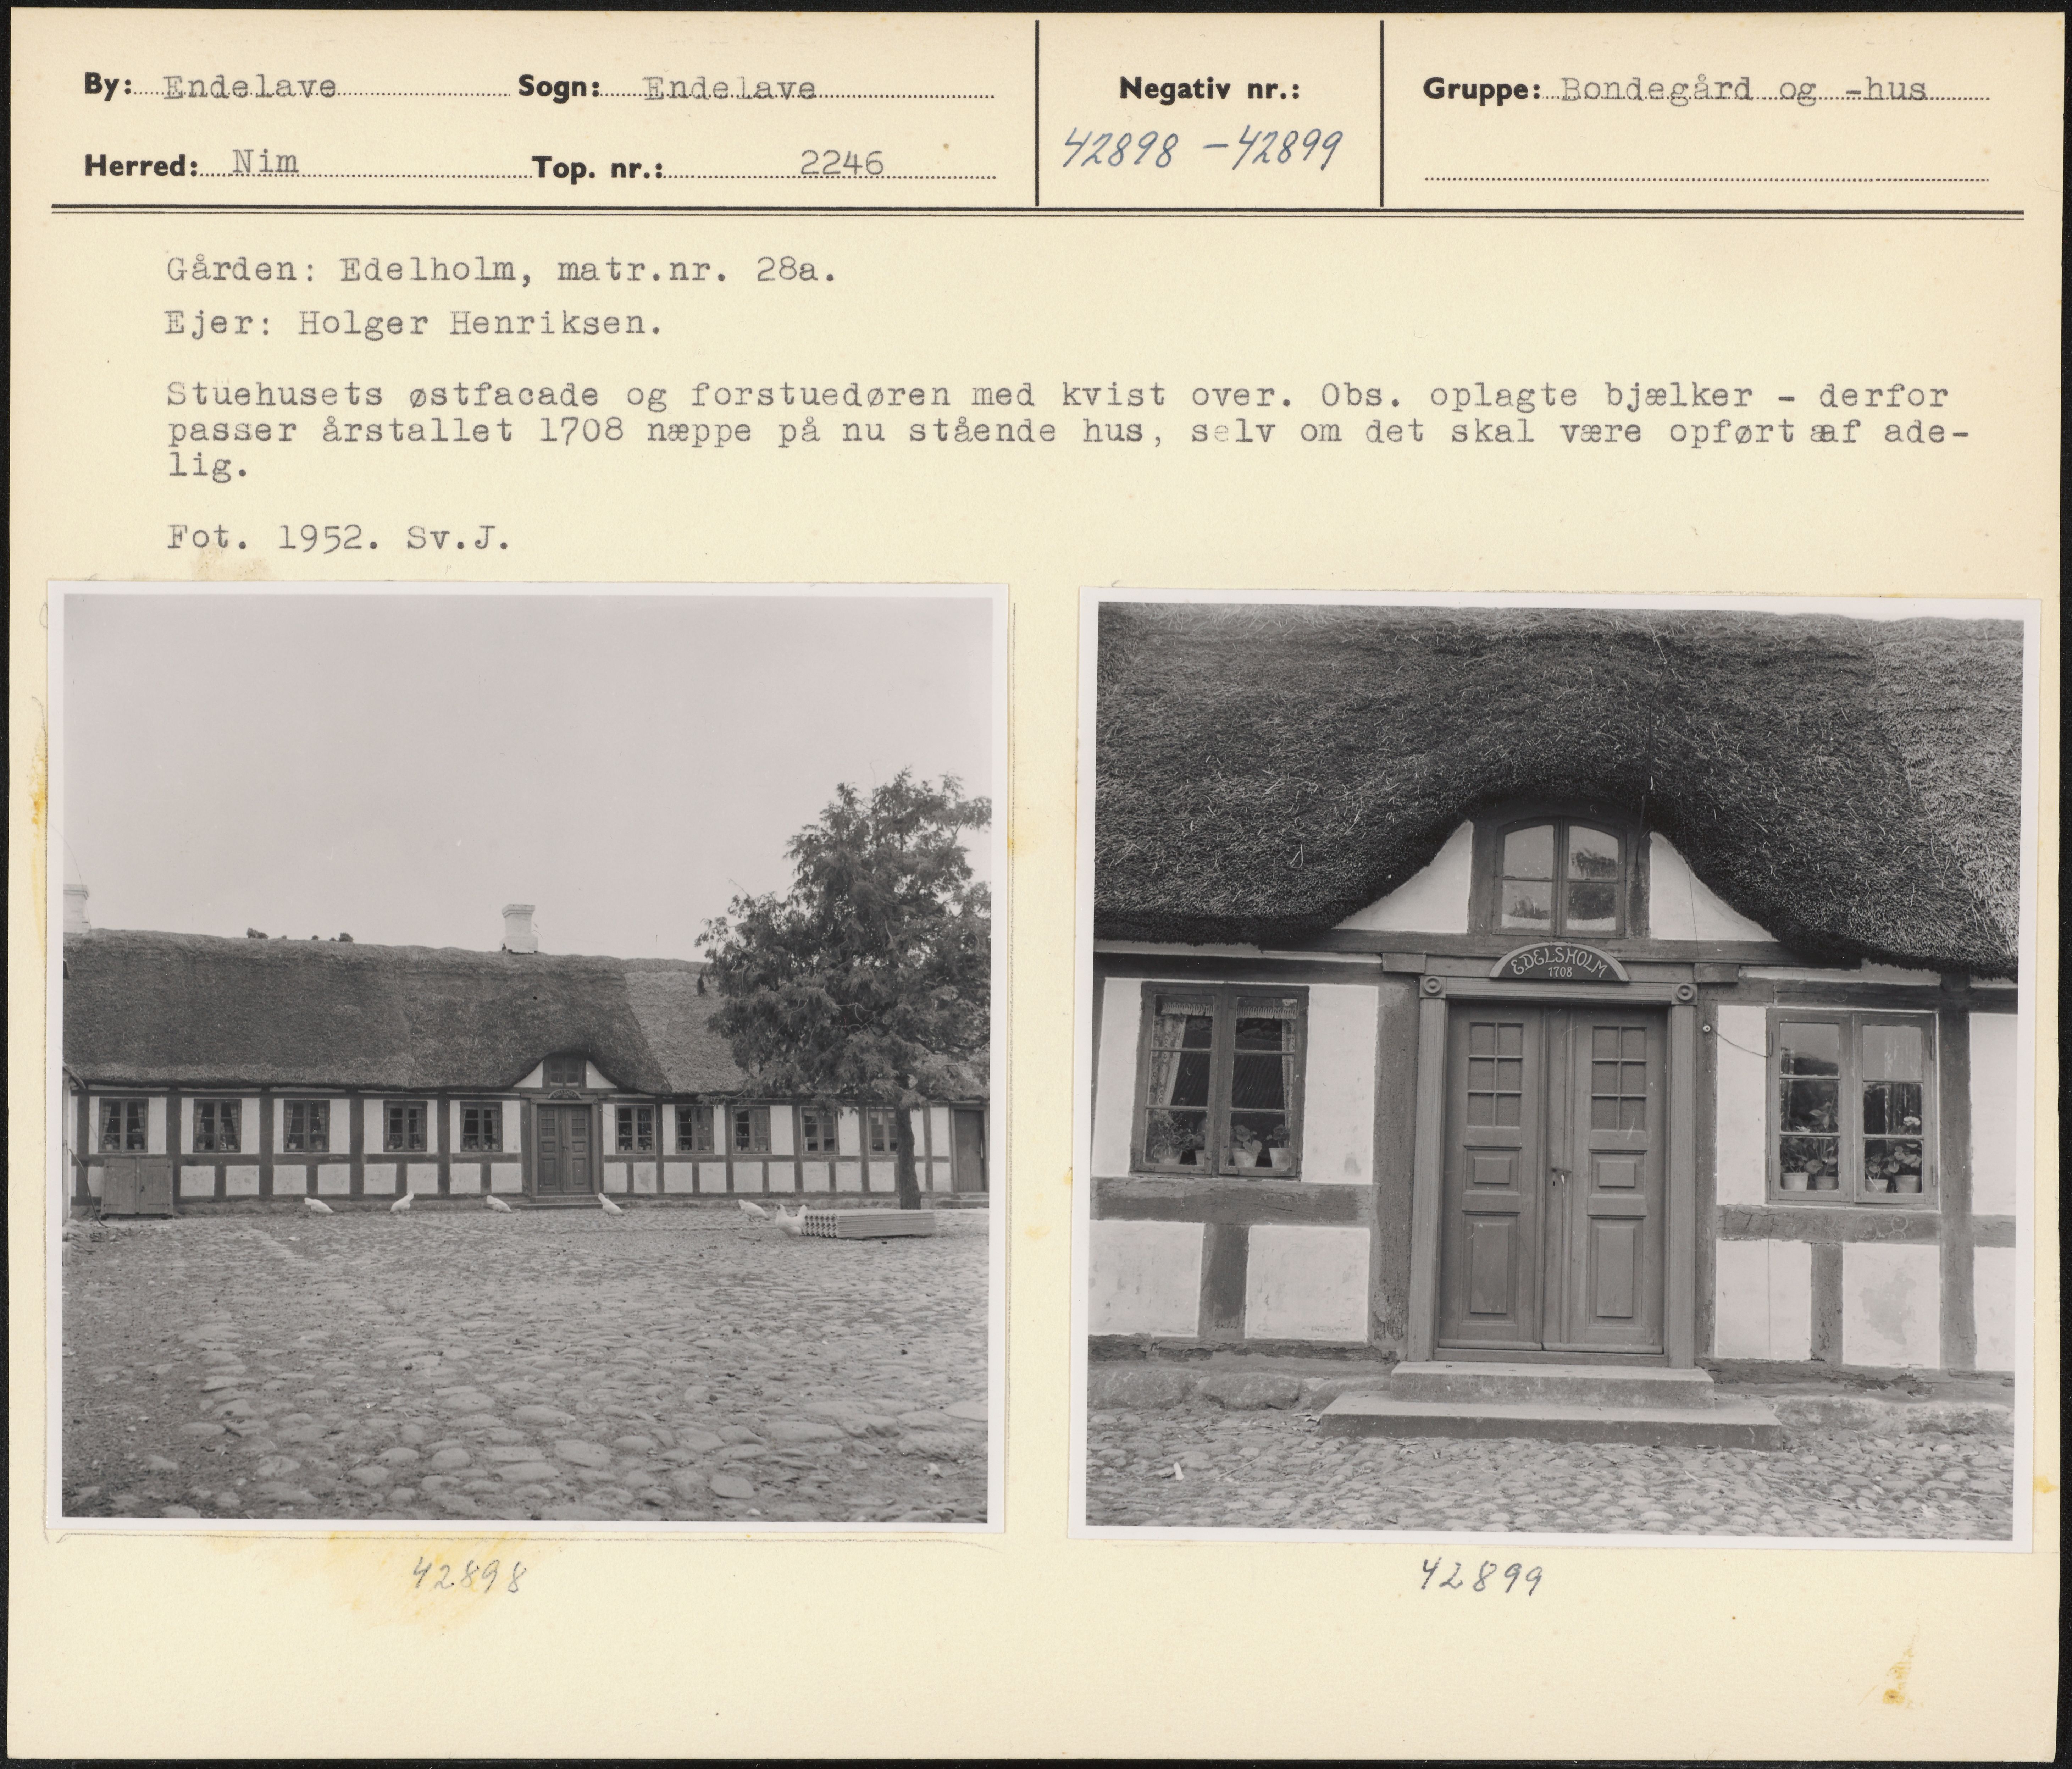 By: Endelave Sogn: Endelave
Negativ nr.:
Gruppe: Bondegård og -hus
Herred: Nim Top. nr.: 2246
42898 - 42899
Gården: Edelholm, matr.nr. 28a.
Ejer: Holger Henriksen.
Stuehusets østfacade og forstuedøren med kvist over. Obs. oplagte bjælker - derfor
passer årstallet 1708 næppe på nu stående hus, selv om det skal være opført af ade-
lig.
Fot. 1952. Sv.J.
EDELSHOLM
1708
42898
42899